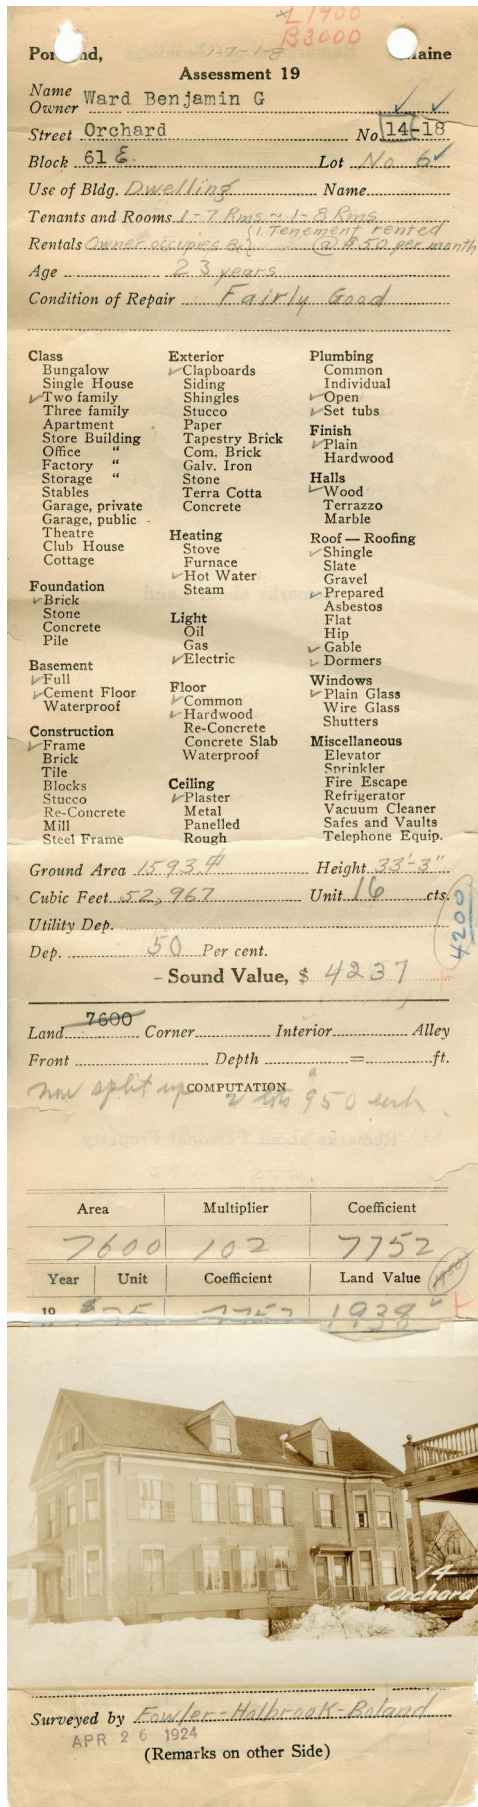 L1900
B3000
1-7-1-8
Po nd, aine
Assessment 19
Name
Owner Ward Benjamin G
Street Orchard No 14-18
Block 61 E. Lot No 6
Use of Bldg. Dwelling Name
Tenants and Rooms 1-7 Rms ~ 1-8 Rms
Rentals Owner occupies & { 1 Tenement rented @ $50 per month
Age 23 years
Condition of Repair Fairly Good
Class
Bungalow
Single House
✓Two family
Three family
Apartment
Store Building
Office "
Factory "
Storage "
Stables
Garage, private
Garage, public
Theatre
Club House
Cottage
Foundation
✓Brick
Stone
Concrete
Pile
Basement
✓Full
✓Cement Floor
Waterproof
Construction
✓Frame
Brick
Tile
Blocks
Stucco
Re-Concrete
Mill
Steel Frame
Exterior
✓Clapboards
Siding
Shingles
Stucco
Paper
Tapestry Brick
Com. Brick
Galv. Iron
Stone
Terra Cotta
Concrete
Heating
Stove
Furnace
✓Hot Water
Steam
Light
Oil
Gas
✓Electric
Floor
✓Common
✓Hardwood
Re-Concrete
Concrete Slab
Waterproof
Ceiling
✓Plaster
Metal
Panelled
Rough
Plumbing
Common
Individual
✓Open
✓Set tubs
Finish
✓Plain
Hardwood
Halls
✓Wood
Terrazzo
Marble
Roof — Roofing
✓Shingle
Slate
Gravel
✓Prepared
Asbestos
Flat
Hip
✓Gable
✓Dormers
Windows
✓Plain Glass
Wire Glass
Shutters
Miscellaneous
Elevator
Sprinkler
Fire Escape
Refrigerator
Vacuum Cleaner
Safes and Vaults
Telephone Equip.
Ground Area 1593 # Height 33'-3"
Cubic Feet 52,967 Unit 16 cts.
Utility Dep.
4200
Dep. 50 Per cent.
- Sound Value, $ 4237
Land 7600 Corner Interior Alley
Front Depth = ft.
COMPUTATION
now split up 2 lots 950 each
Area Multiplier Coefficient
7600 102 7752
Year Unit Coefficient Land Value 1950
19 $ 25 7752 1938
14
Orchard
Surveyed by Fowler-Holbrook-Boland
APR 26 1924
(Remarks on other Side)